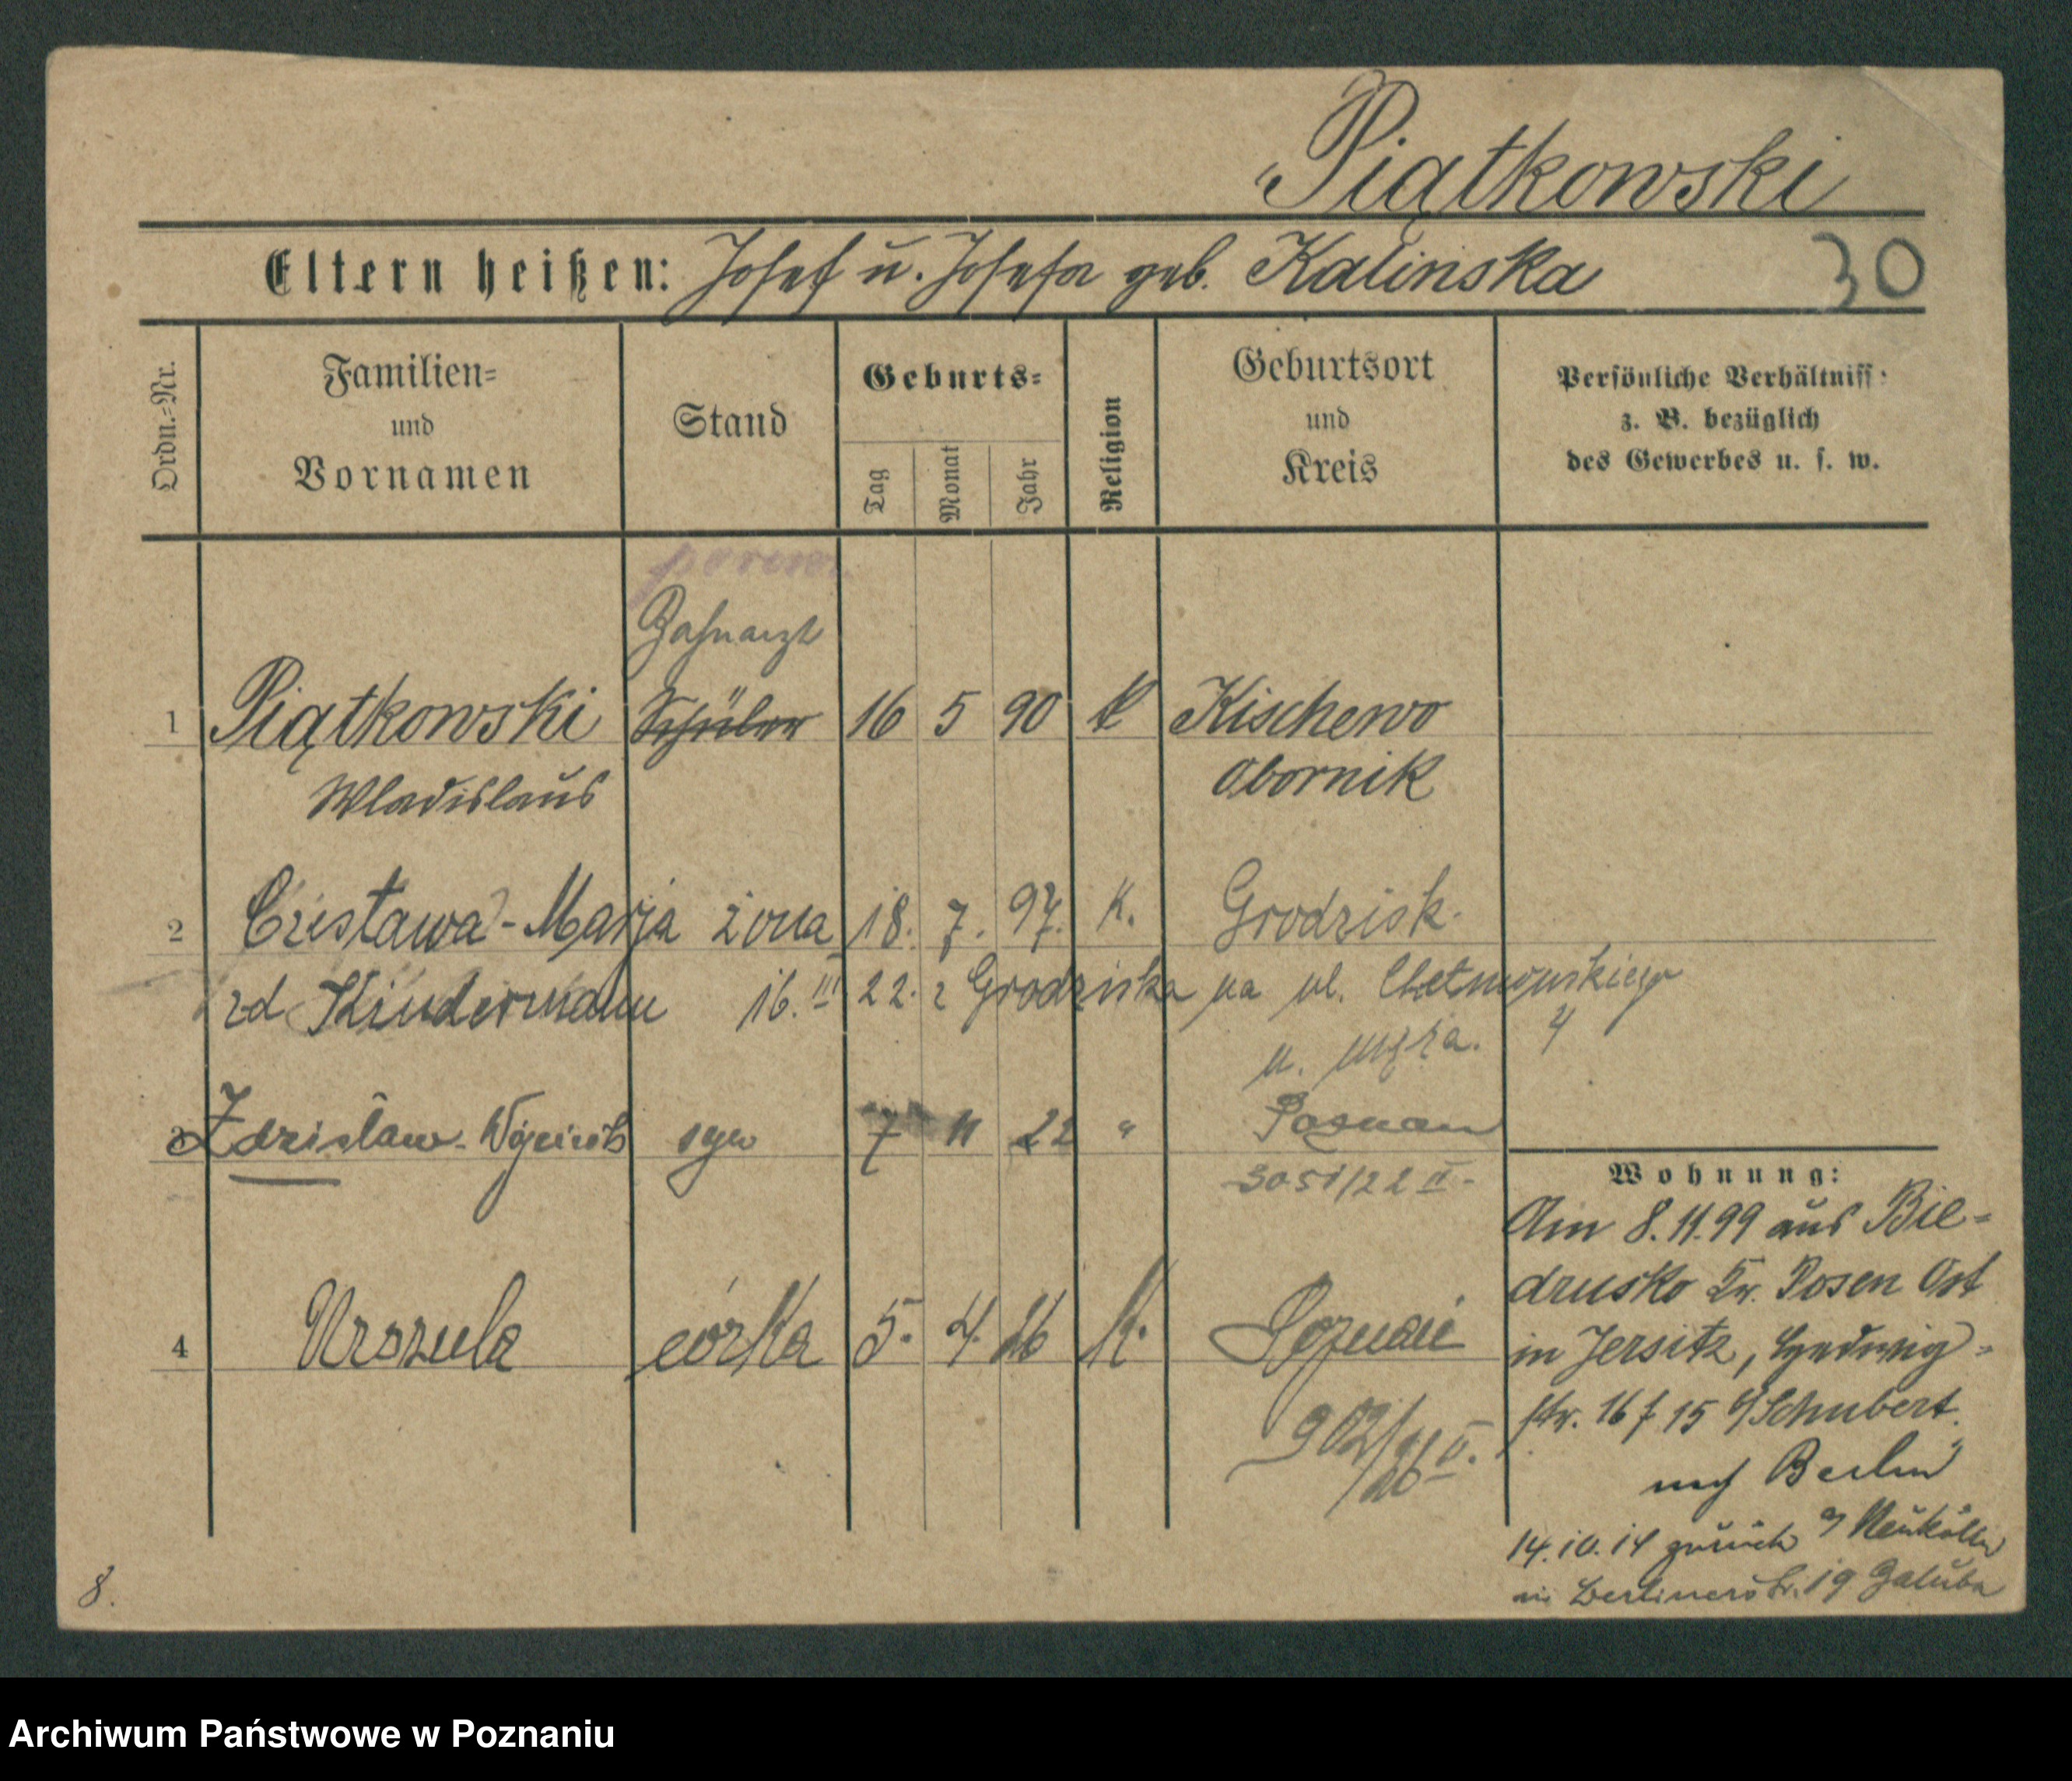 Piątkowski
Eltern heißen: Josef u. Josefa geb. Kalinska 30
Ordn.-Nr.
Familien-
und
Vornamen
Stand
Geburts-
Tag
Monat
Jahr
Religion
Geburtsort
und
Kreis
Persönliche Verhältniss
z. B. bezüglich
des Gewerbes u. s. w.
Zahnarzt
1 Piątkowski Schüler 16 5 90 k Kischewo
Wladislaus Obornik
2 Czesława-Marja żona 18. 7. 97. K. Grodzisk.
zd Kindermann 16. III 22. z Grodziska na ul.
4
3 Zdzisław- syn 7 11 22 " Poznan
3051/22 II-
4 Urszula córka 5. 4. 26 K. Poznań
902/26 II.
Wohnung:
Am 8.11.99 aus Bie-
drusko Kr. Posen Ost
in Jersitz, Hedwig-
str. 16 15 Schubert.
nach Berlin
14.10.14 zurück Neukölln
in Berlinerstr. 19
8.
Archiwum Państwowe w Poznaniu